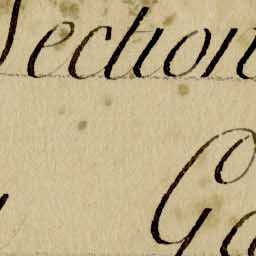 Section
Ga